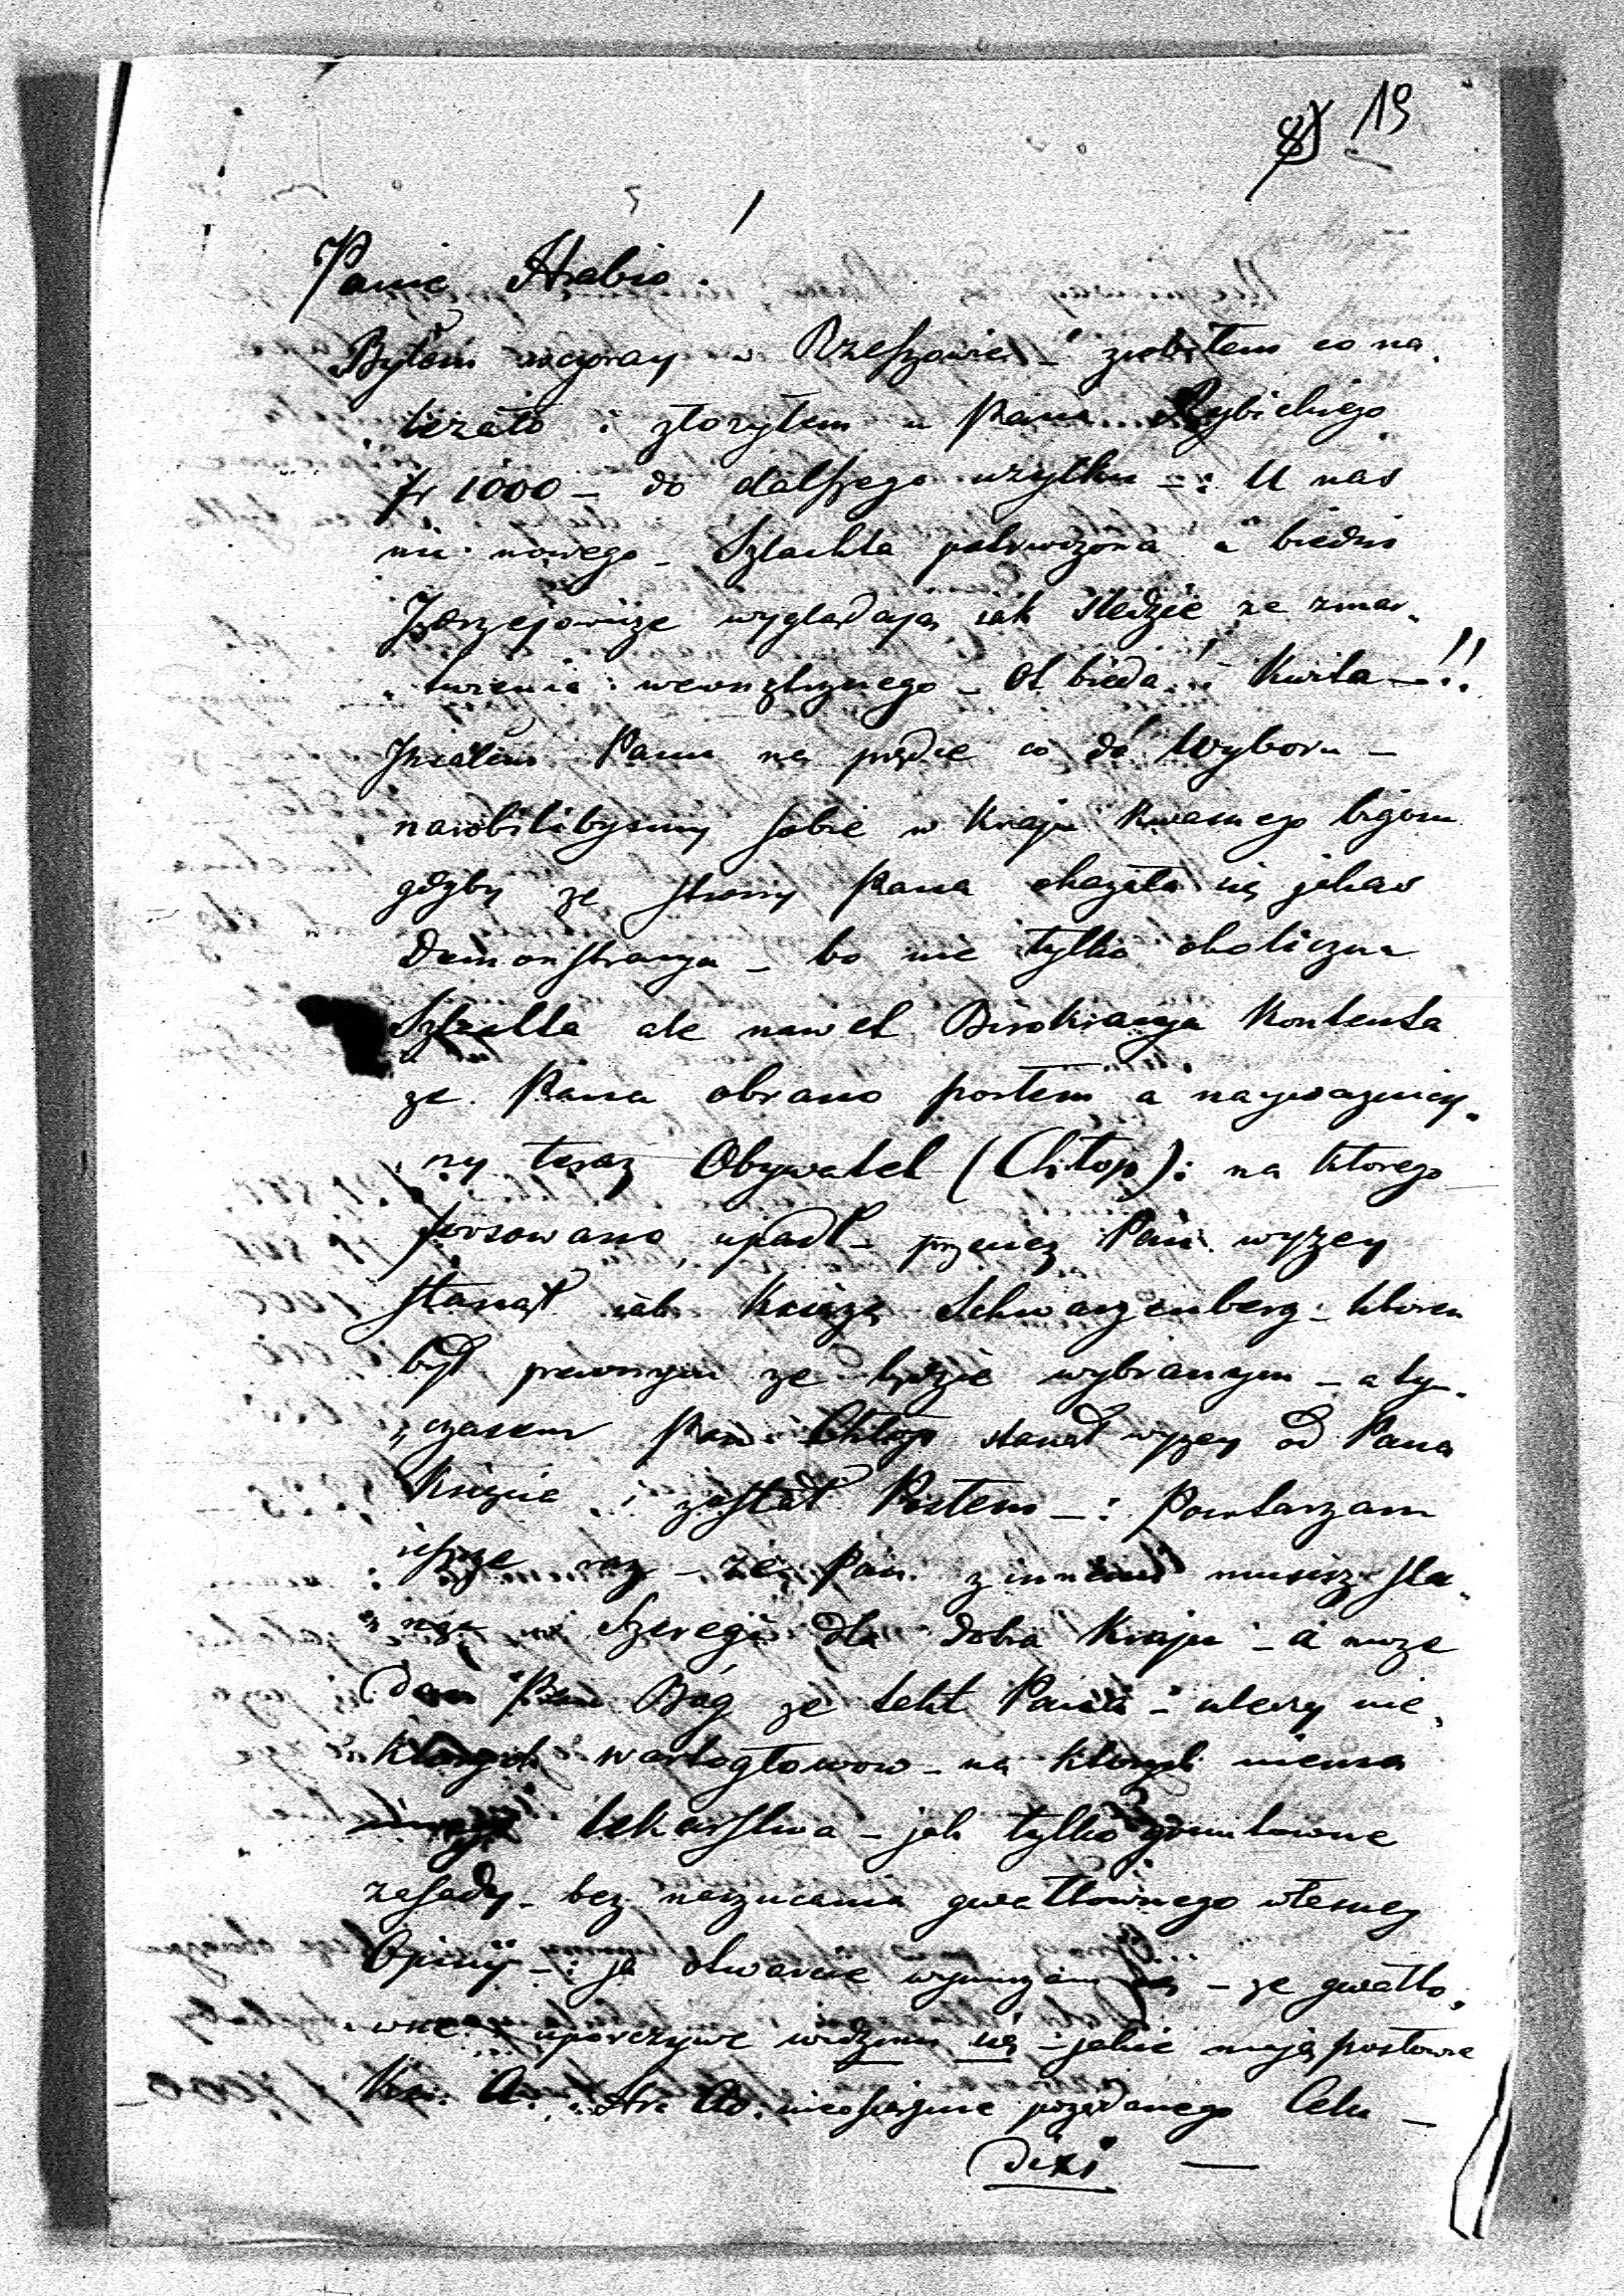 8) 19
Panie Hrabio.
Byłem wczoray w Rzeszowie – zrobiłem co na„
„leżało i złożyłem u Pana Rybickiego
fr 1000 – do dalszego użytku –: U nas
nic nowego – Szlachta
Jędrzejowicze wyglądają jak śledzie ze zmar„
„twienia wewnętrznego – Ot bieda i kwita –!!
Pana co do Wyboru –
narobilibysmy sobie w Kraju kwasnego bigosu
gdyby ze strony Pana okazała się jakas
Demonstracya – bo nie tylko okoliczna
Szlachta ale nawet Birokracya kontenta
ze Pana obrano posłem a nayważniey„
„ny teraz Obywatel (Chłop): na ktorego
forsowano, upadł – Pan wyzey
stanął jak Książę Schwarzenberg – ktoren
był pewnym ze będzie wybranym – a ty„
„czasem Pan Chłop stanął wyzey od Pana
Księcia i został Posłem –: Powtarzam
jeszcze raz – że Pan z innemi musisz sta„
„nąc w Szeregi dla dobra Kraju – a moze
Pan Bóg ze takt Pana – uleczy nie„
ktorych wartogłowow – na ktorych niema
lekarstwa – jak tylko gruntowne
zasady – bez narzucania gwałtownego własney
Opinij –: ja otwarcie – ze gwałto„
„wne uporczywe widzenie się – jakie mają posłowie
Ks: A. Hr: Ad. nieosiągnie pożądanego Celu –
Dixi –